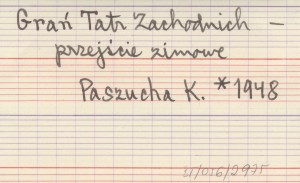 Grań Tatr Zachodnich –
przejście zimowe
Paszucha K. *1948